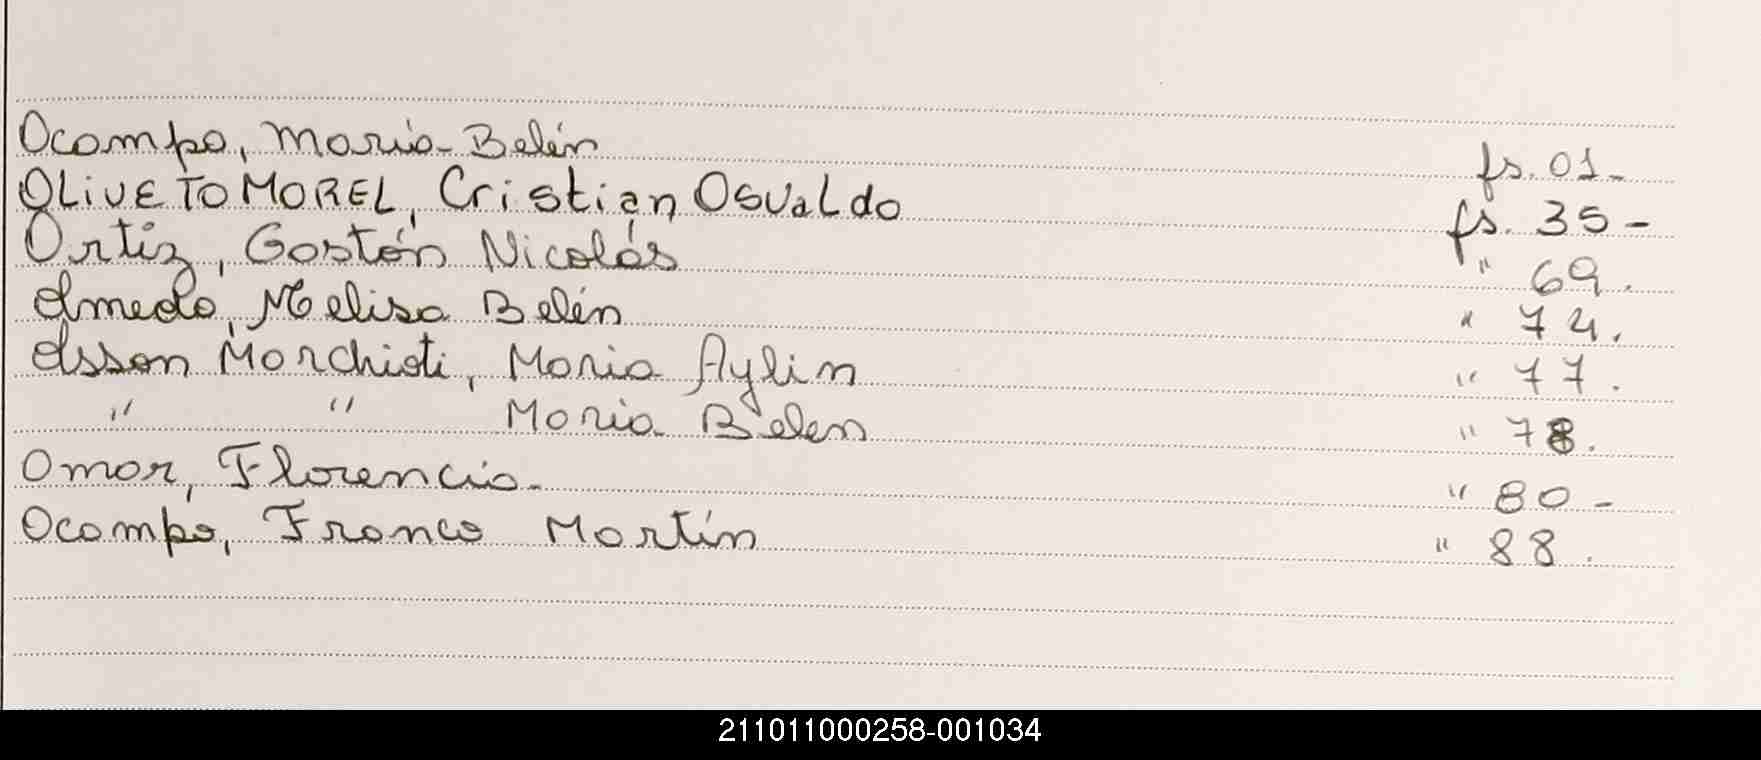 Ocampo, María Belén fs. 01-
OLIVETO MOREL, Cristian Osvaldo fs. 35-
Ortiz, Gastón Nicolás " 69.
Olmedo, Melisa Belén " 74.
Olsson Marchisti, Maria Aylin " 77.
" " Maria Belen " 78.
Omar, Florencia- " 80-
Ocampo, Franco Martín " 88.
211011000258-001034